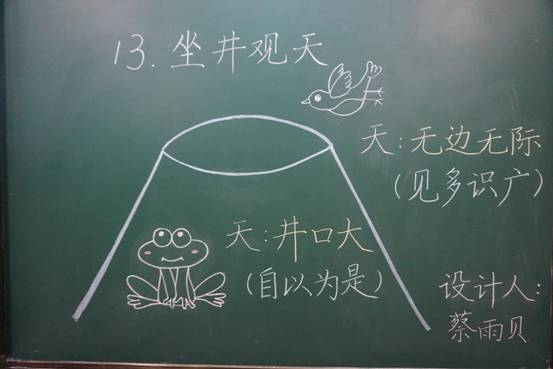 13.坐井观天
天:无边无际
(见多识广)
天:井口大
(自以为是)
设计人:
蔡雨贝